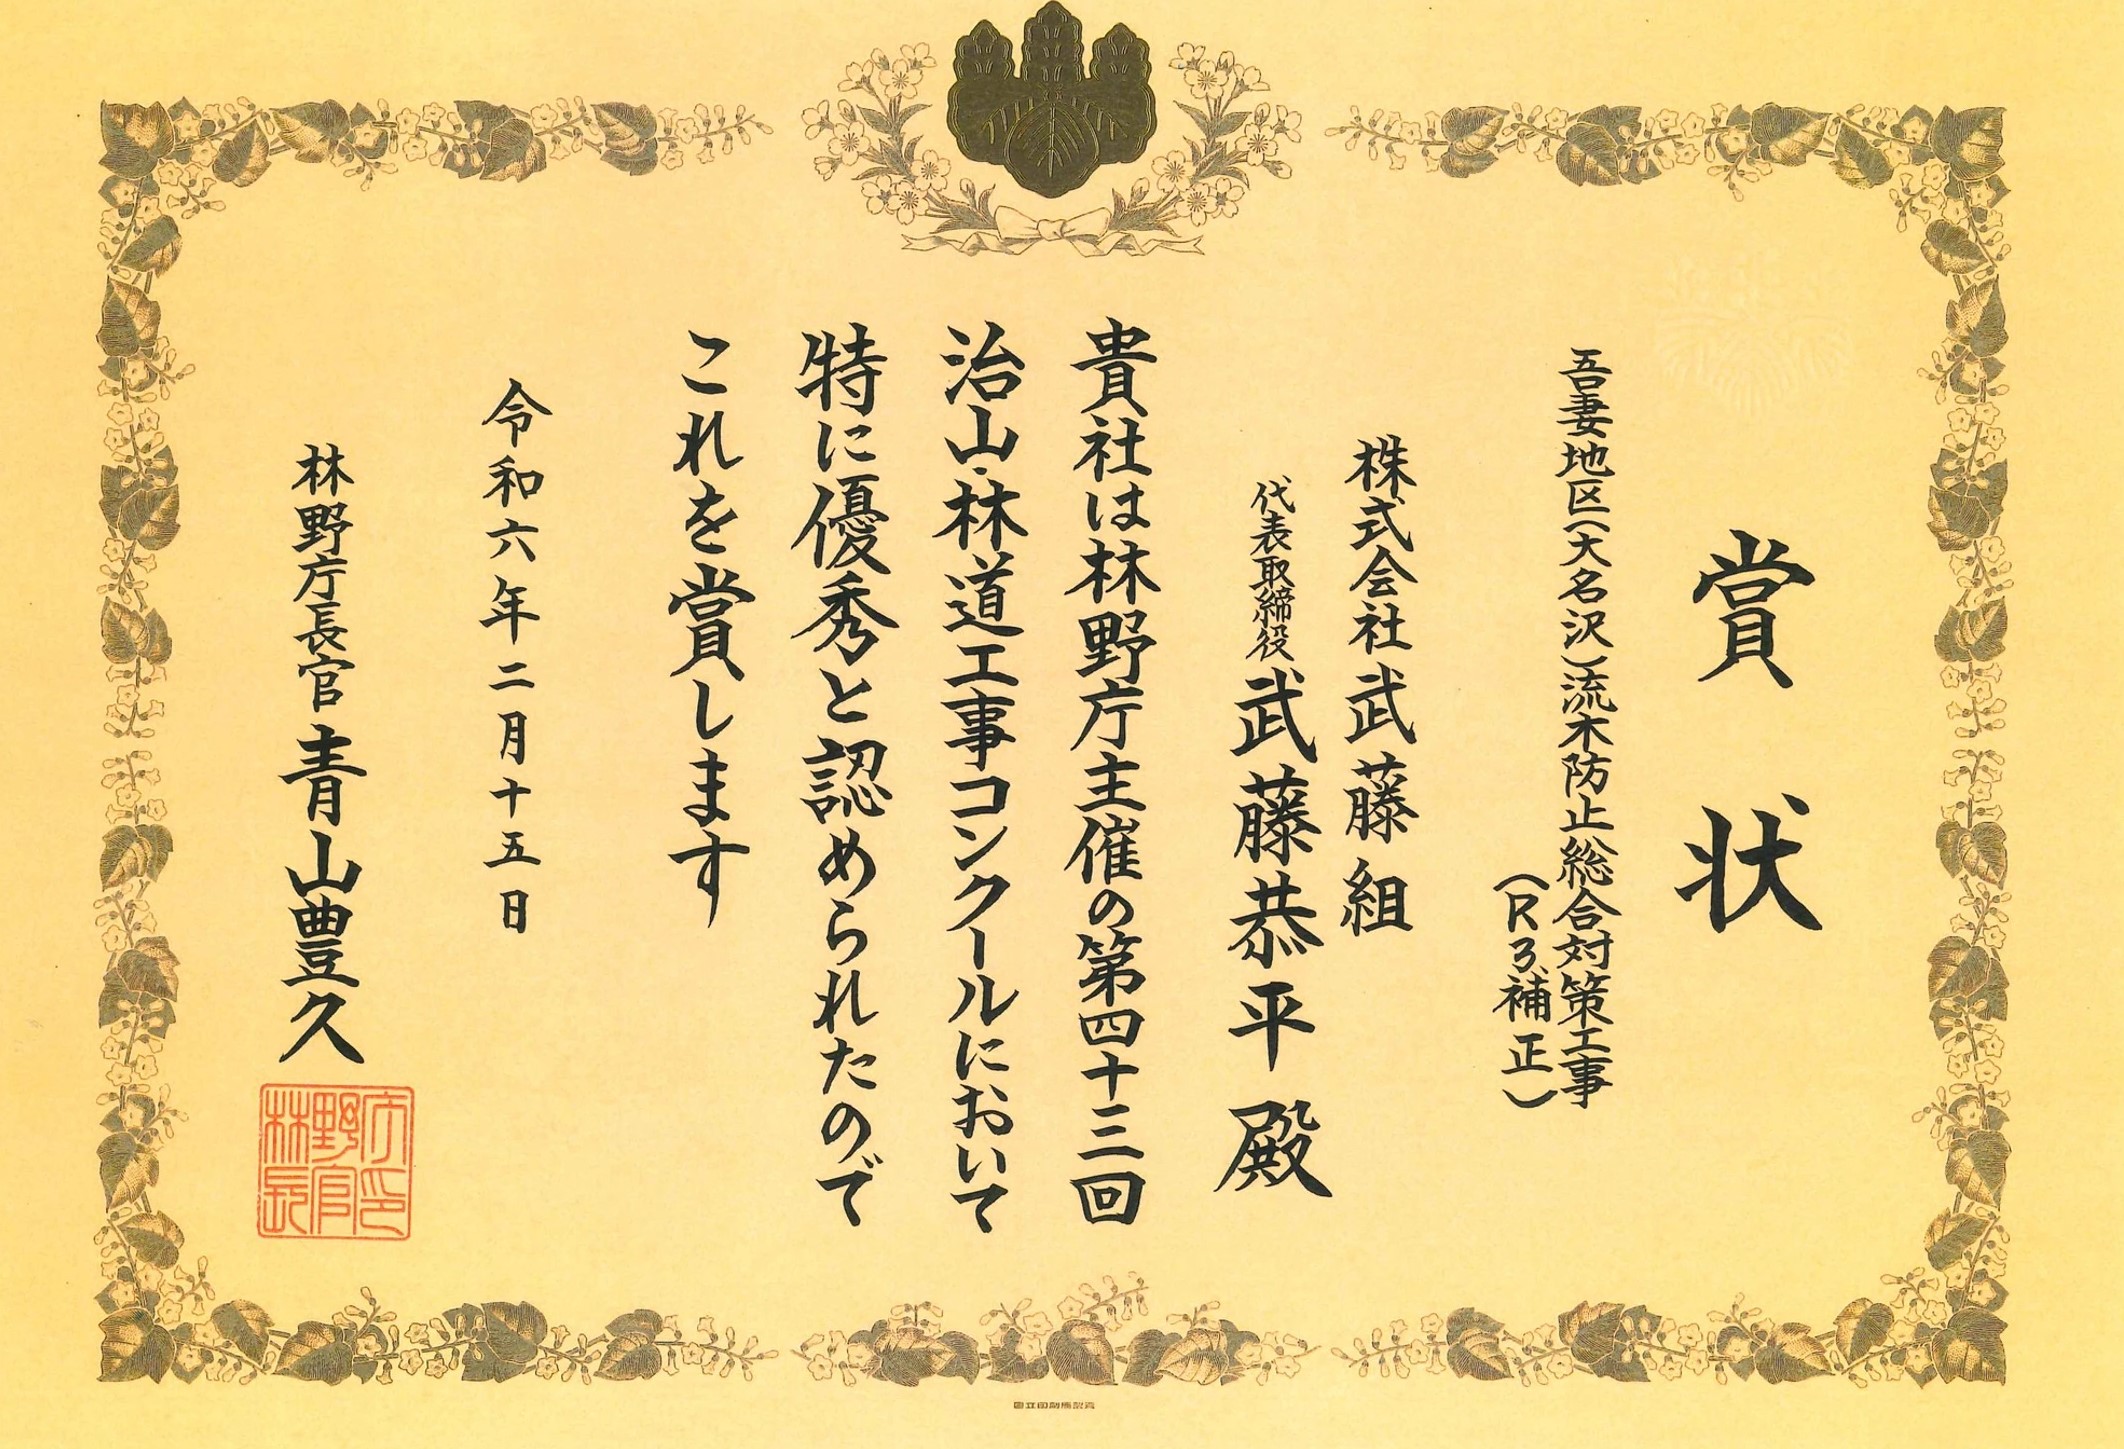 賞状
吾妻地区(大名沢)流木防止総合対策工事
(R3補正)
株式会社武藤組
代表取締役 武藤恭平殿
貴社は林野庁主催の第四十三回
治山・林道工事コンクールにおいて
特に優秀と認められたので
これを賞します
令和六年二月十五日
林野庁長官 青山豊久
林野庁長官印
国立印刷局製造